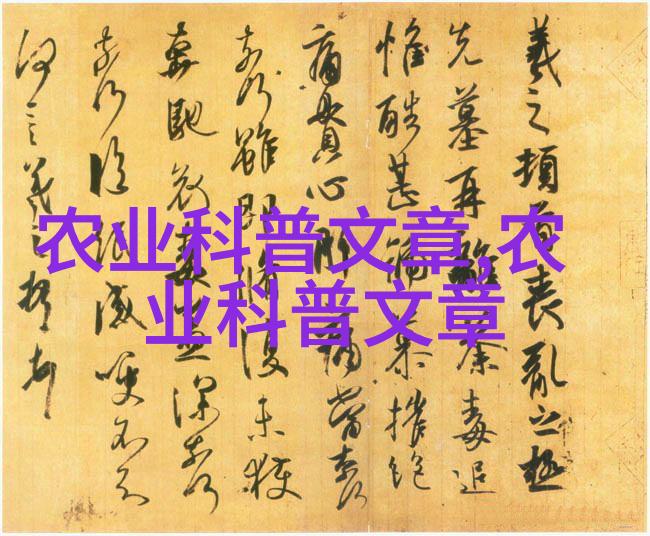 农业科普文章,农
业科普文章
羲之頓首喪亂之極
先墓再離荼毒追
惟酷甚號慕摧絕
痛貫心肝痛當奈何
奈何雖即脩復未獲
奔馳哀毒益深奈何
奈何臨紙感哽不知
何言羲之頓首